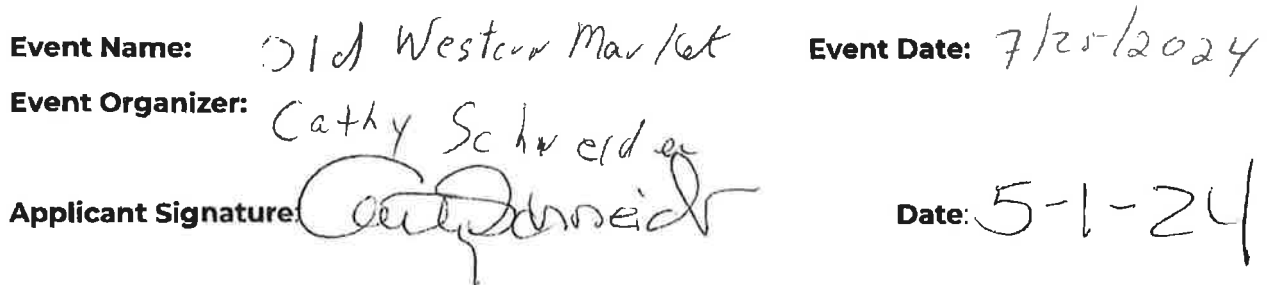 Event Name: Old Western Market Event Date: 7/25/2024
Event Organizer: Cathy Schneider
Applicant Signature: Cathy Schneider Date: 5-1-24